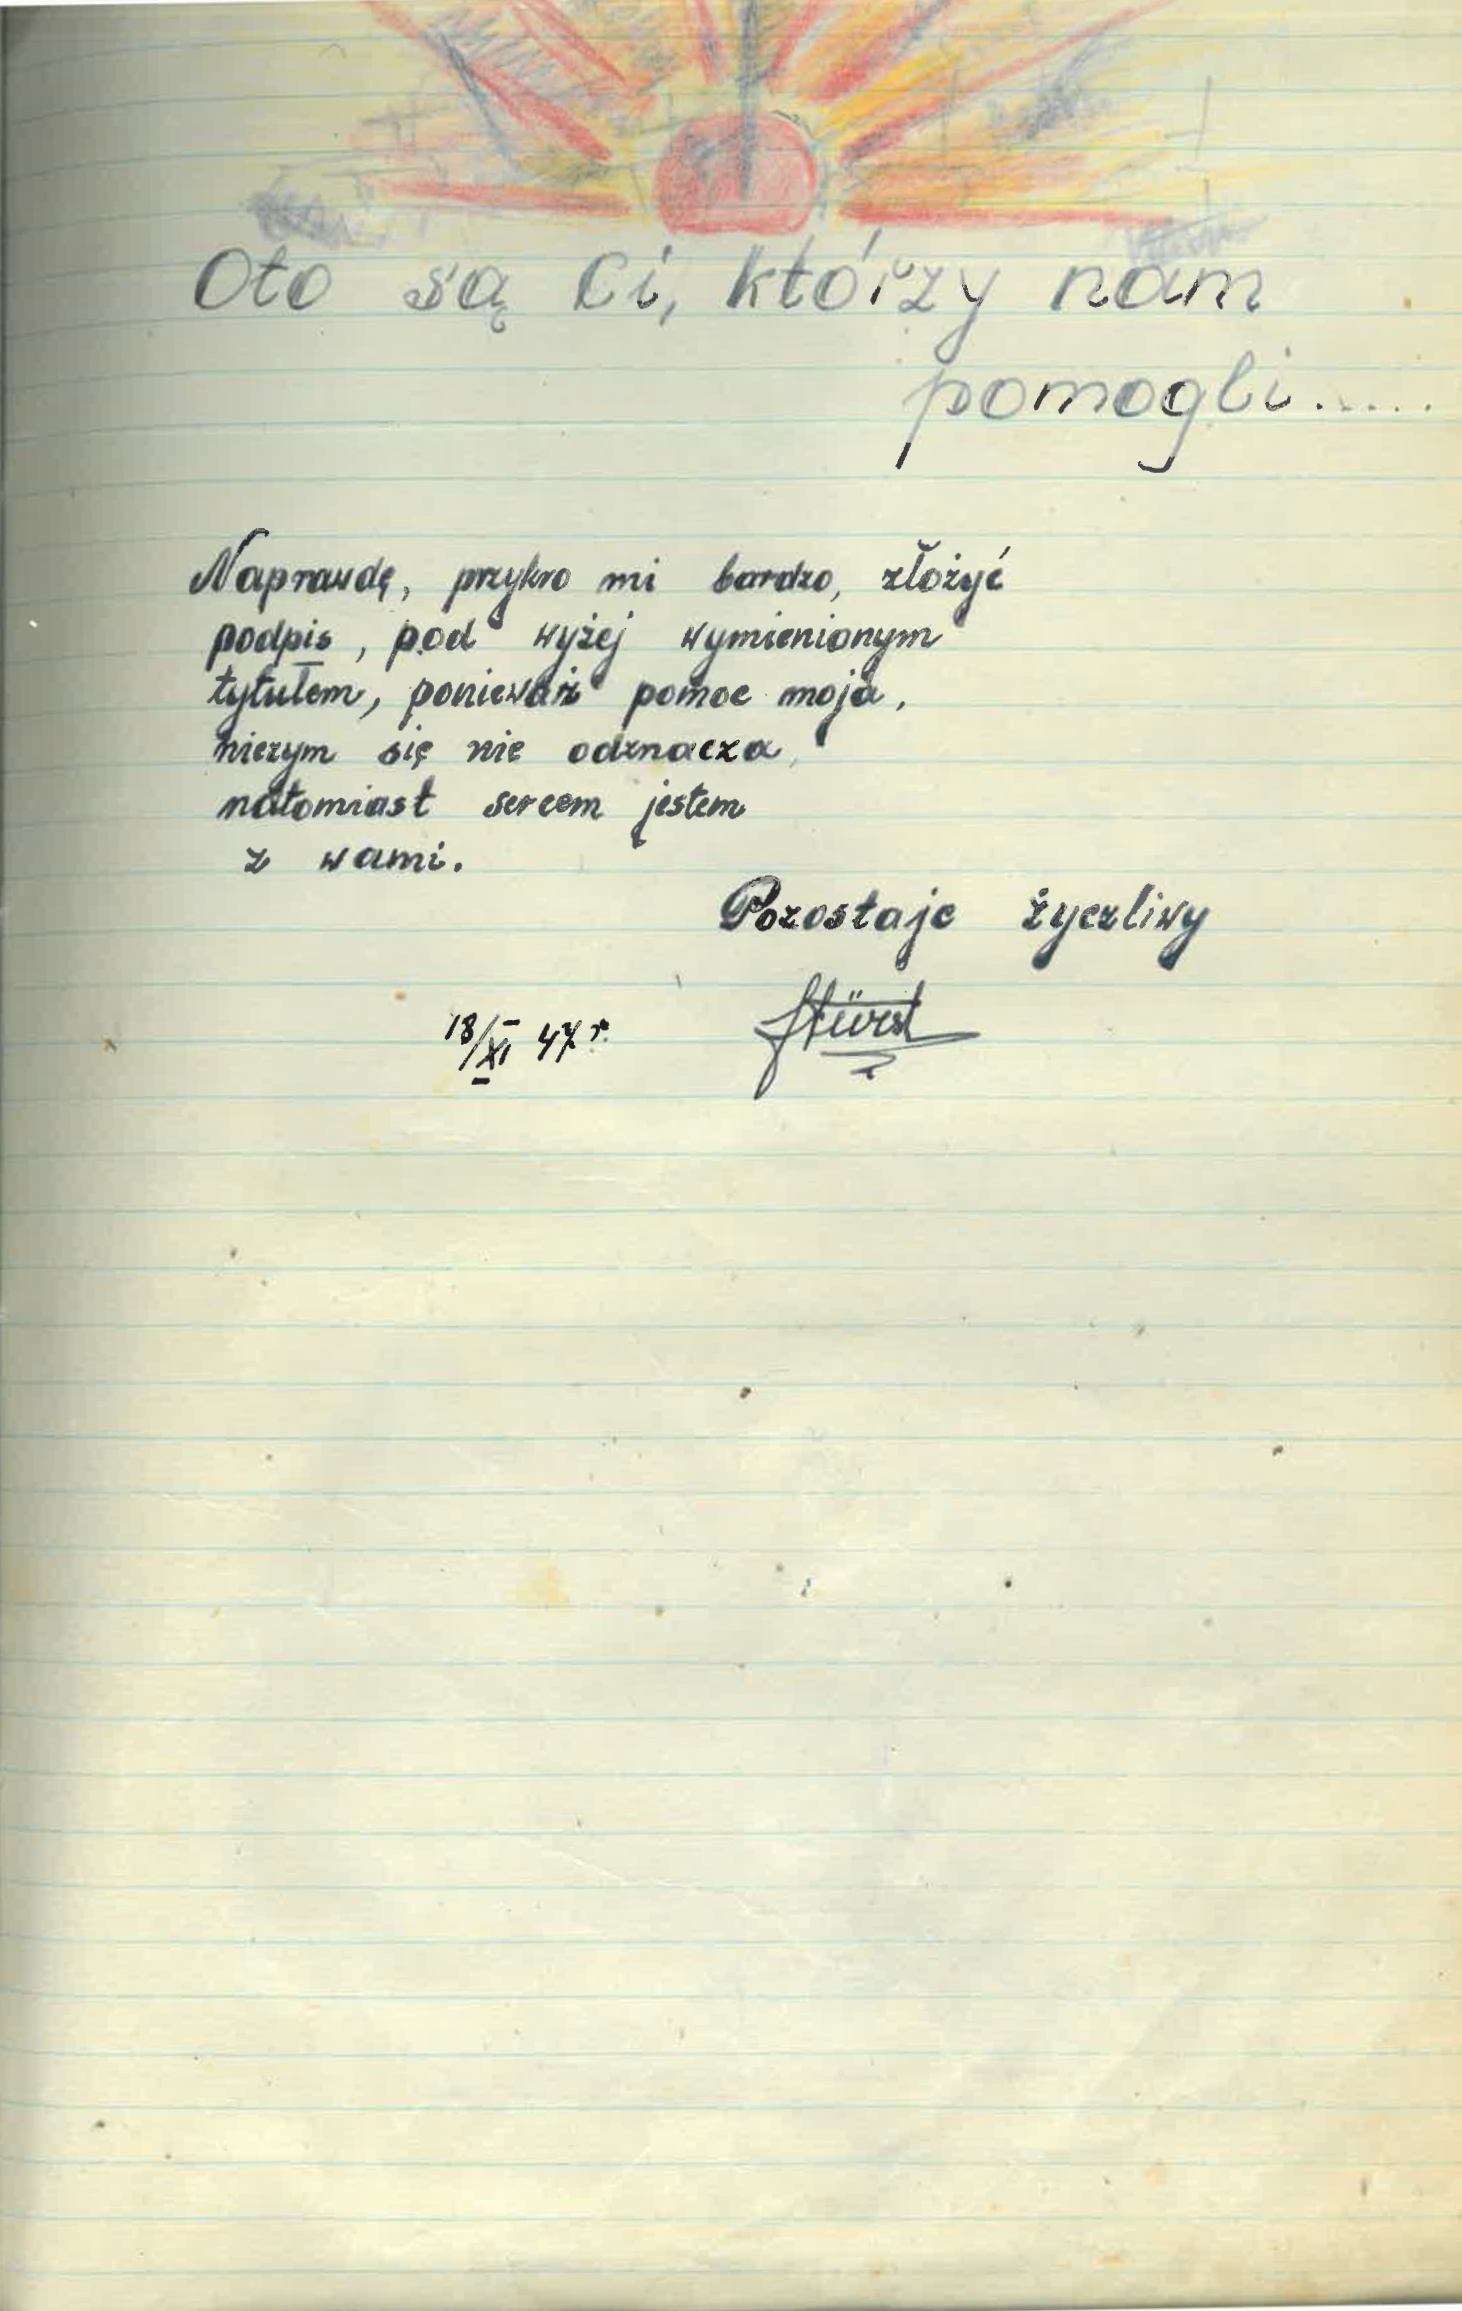 Oto są Ci, którzy nam
pomogli.....
Naprawdę, przykro mi bardzo, złożyć
podpis, pod wyżej wymienionym
tytułem, ponieważ pomoc moja,
niczym się nie odznacza,
natomiast sercem jestem
z wami.
Pozostaje życzliwy
18/XI 47 r.